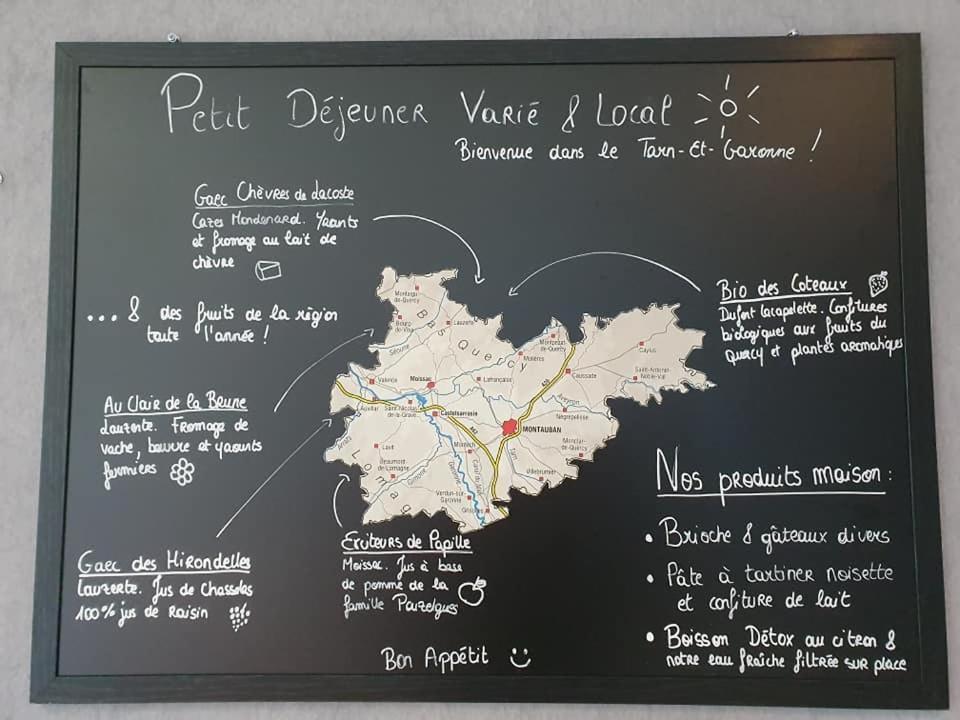 Petit Déjeuner Varié & Local
Bienvenue dans le Tarn-Et-Garonne !
Gaec Chèvres de Lacoste
Cazes Mondenard. Yaourts
et fromage au lait de
chèvre
... & des fruits de la région
toute l'année !
Bio des Coteaux
Dufort Lacapelette. Confitures
biologiques aux fruits du
Quercy et plantes aromatiques
Au Clair de la Beune
Lauzerte. Fromage de
vache, beurre et yaourts
fermiers
Gaec des Hirondelles
Lauzerte. Jus de Chasselas
100% jus de Raisin
Moissac. Jus à base
de pomme de la
famille
Nos produits maison :
• Brioche & gâteaux divers
• Pâte à tartiner noisette
et confiture de lait
• Boisson Détox au citron &
notre eau fraîche filtrée sur place
Bon Appétit
Montaigu-
de-Quercy
Bourg-
de-Visa
Lauzerte
Bas Quercy
Séoune
Molières
Montpezat-
de-Quercy
Caylus
Valence
Moissac
Lafrançaise
Caussade
Saint-Antonin-
Noble-Val
A20
Auvillar
Saint-Nicolas-
de-la-Grave
Castelsarrasin
Aveyron
Nègrepelisse
Arrats
Lavit
A62
MONTAUBAN
Montech
Monclar-
de-Quercy
Beaumont-
de-Lomagne
Gimone
Garonne
Tarn
Villebrumier
Lomag
Verdun-sur-
Garonne
Grisolles